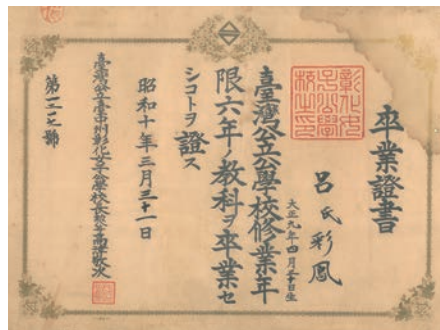 卒業證書
呂氏彩鳳
大正九年四月三十日生
臺灣公立公學校修業年
限六年ノ教科ヲ卒業セ
シコトヲ證ス
昭和十年三月三十一日
臺灣公立臺中州彰化女子公學校長
第一二七號